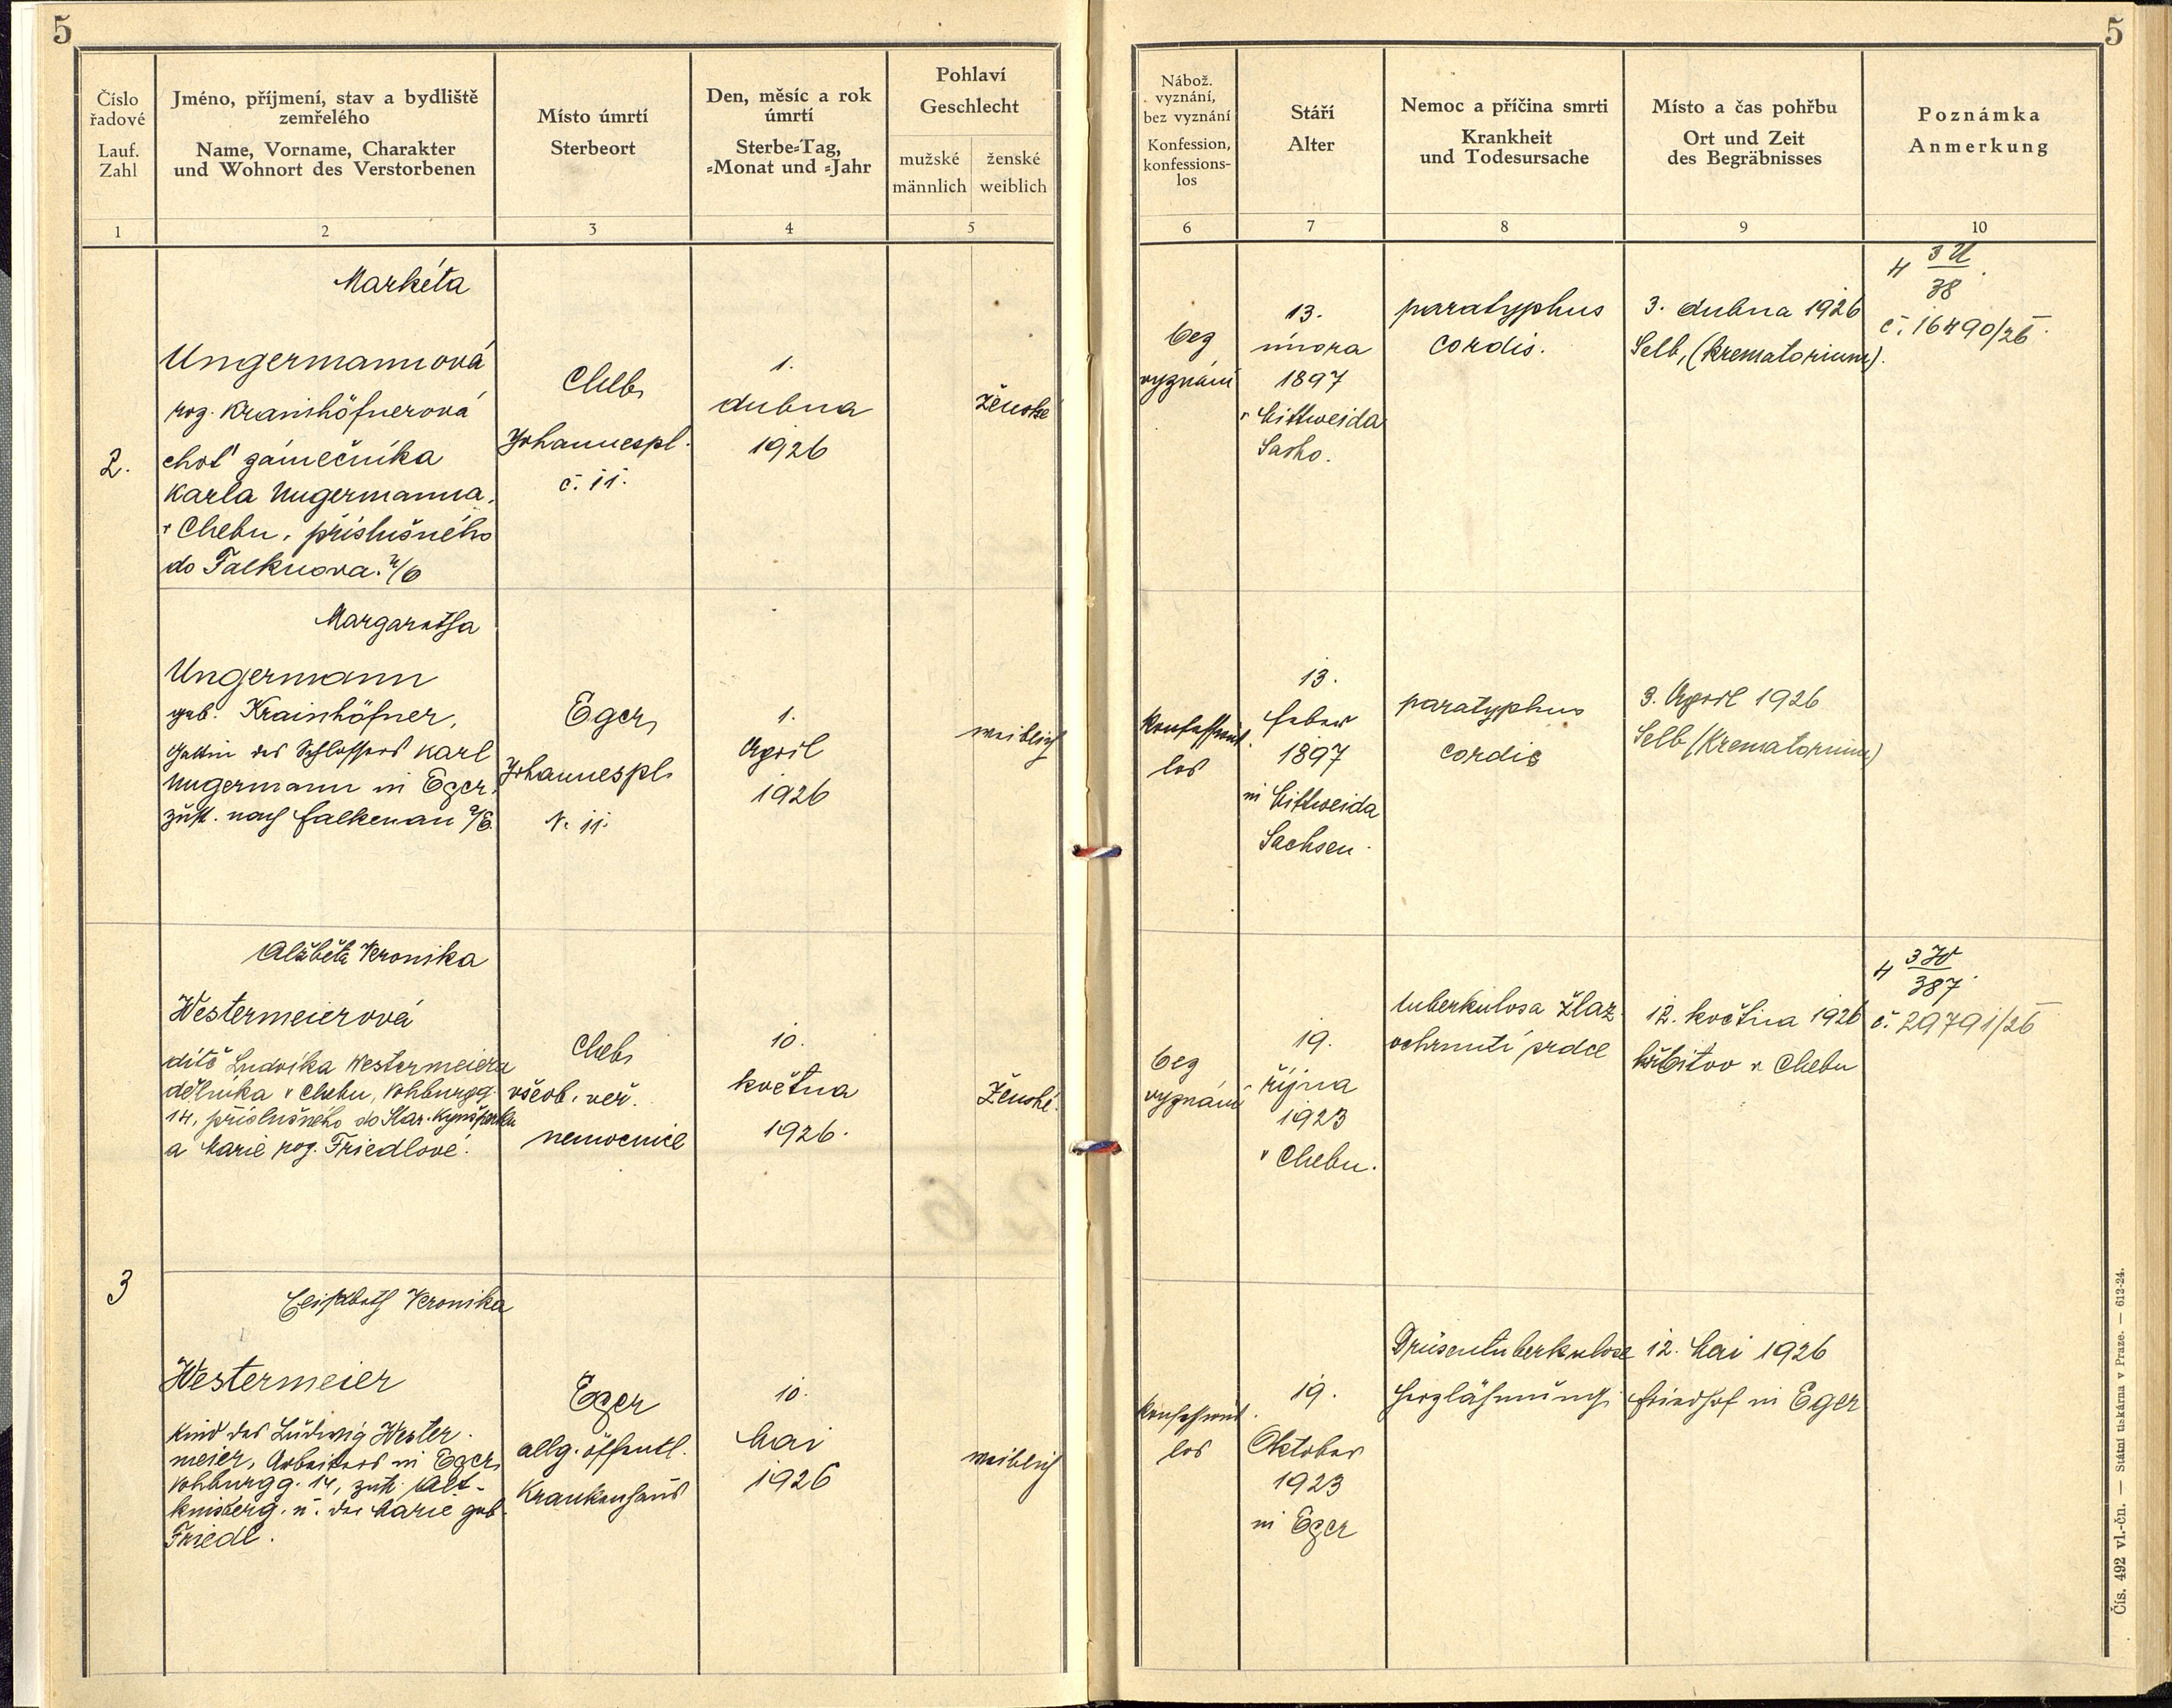 5
5
Číslo
řadové
Lauf.
Zahl
Jméno, příjmení, stav a bydliště
zemřelého
Name, Vorname, Charakter
und Wohnort des Verstorbenen
Místo úmrtí
Sterbeort
Den, měsíc a rok
úmrtí
Sterbe-Tag,
-Monat und -Jahr
Pohlaví
Geschlecht
mužské
männlich
ženské
weiblich
Nábož.
vyznání,
bez vyznání
Konfession,
konfessions-
los
Stáří
Alter
Nemoc a příčina smrti
Krankheit
und Todesursache
Místo a čas pohřbu
Ort und Zeit
des Begräbnisses
Poznámka
Anmerkung
1
2
3
4
5
6
7
8
9
10
2.
Markéta
Ungermannová
roz. Krainhöfnerová
choť zámečníka
Karla Ungermanna,
v Chebu, příslušného
do Falknova.
Cheb,
Johannespl.
č. 11.
1.
dubna
1926
ženské
bez
vyznání
13.
února
1897
v Mittweida
Sasko.
paratyphus
cordis.
3. dubna 1926
Selb, (krematorium).
4 3 U
38
č. 16490/26
Margaretha
Ungermann
geb. Krainhöfner,
Gattin des Schlossers Karl
Ungermann in Eger,
zust. nach Falkenau a/E.
Eger,
Johannespl.
N. 11.
1.
April
1926
weiblich
konfessions-
los
13.
Feber
1897
in Mittweida
Sachsen.
paratyphus
cordis
3. April 1926
Selb (Krematorium)
3
Alžběta Veronika
Westermeierová
dítě Ludvíka Westermeiera
dělníka v Chebu, Vohburgg.
14, příslušného do Star. Kynšperku
a Marie roz. Friedlové.
Cheb,
všeob. veř.
nemocnice
10.
května
1926.
ženské.
bez
vyznání
19.
října
1923
v Chebu.
tuberkulosa žlaz
ochrnutí srdce
12. května 1926
hřbitov v Chebu
4 3 W
387
č. 29791/26
Elisabeth Veronika
Westermeier
Kind des Ludwig Wester-
meier, Arbeiters in Eger,
Vohburgg. 14, zust. Alt-
kinsberg. u. der Marie geb.
Friedl.
Eger
allg. öffentl.
Krankenhaus
10.
Mai
1926
weiblich
konfessions-
los
19.
Oktober
1923
in Eger
Drüsentuberkulose
Herzlähmung
12. Mai 1926
Friedhof in Eger
Čís. 492 vl.-čn. — Státní tiskárna v Praze. — 612-24.